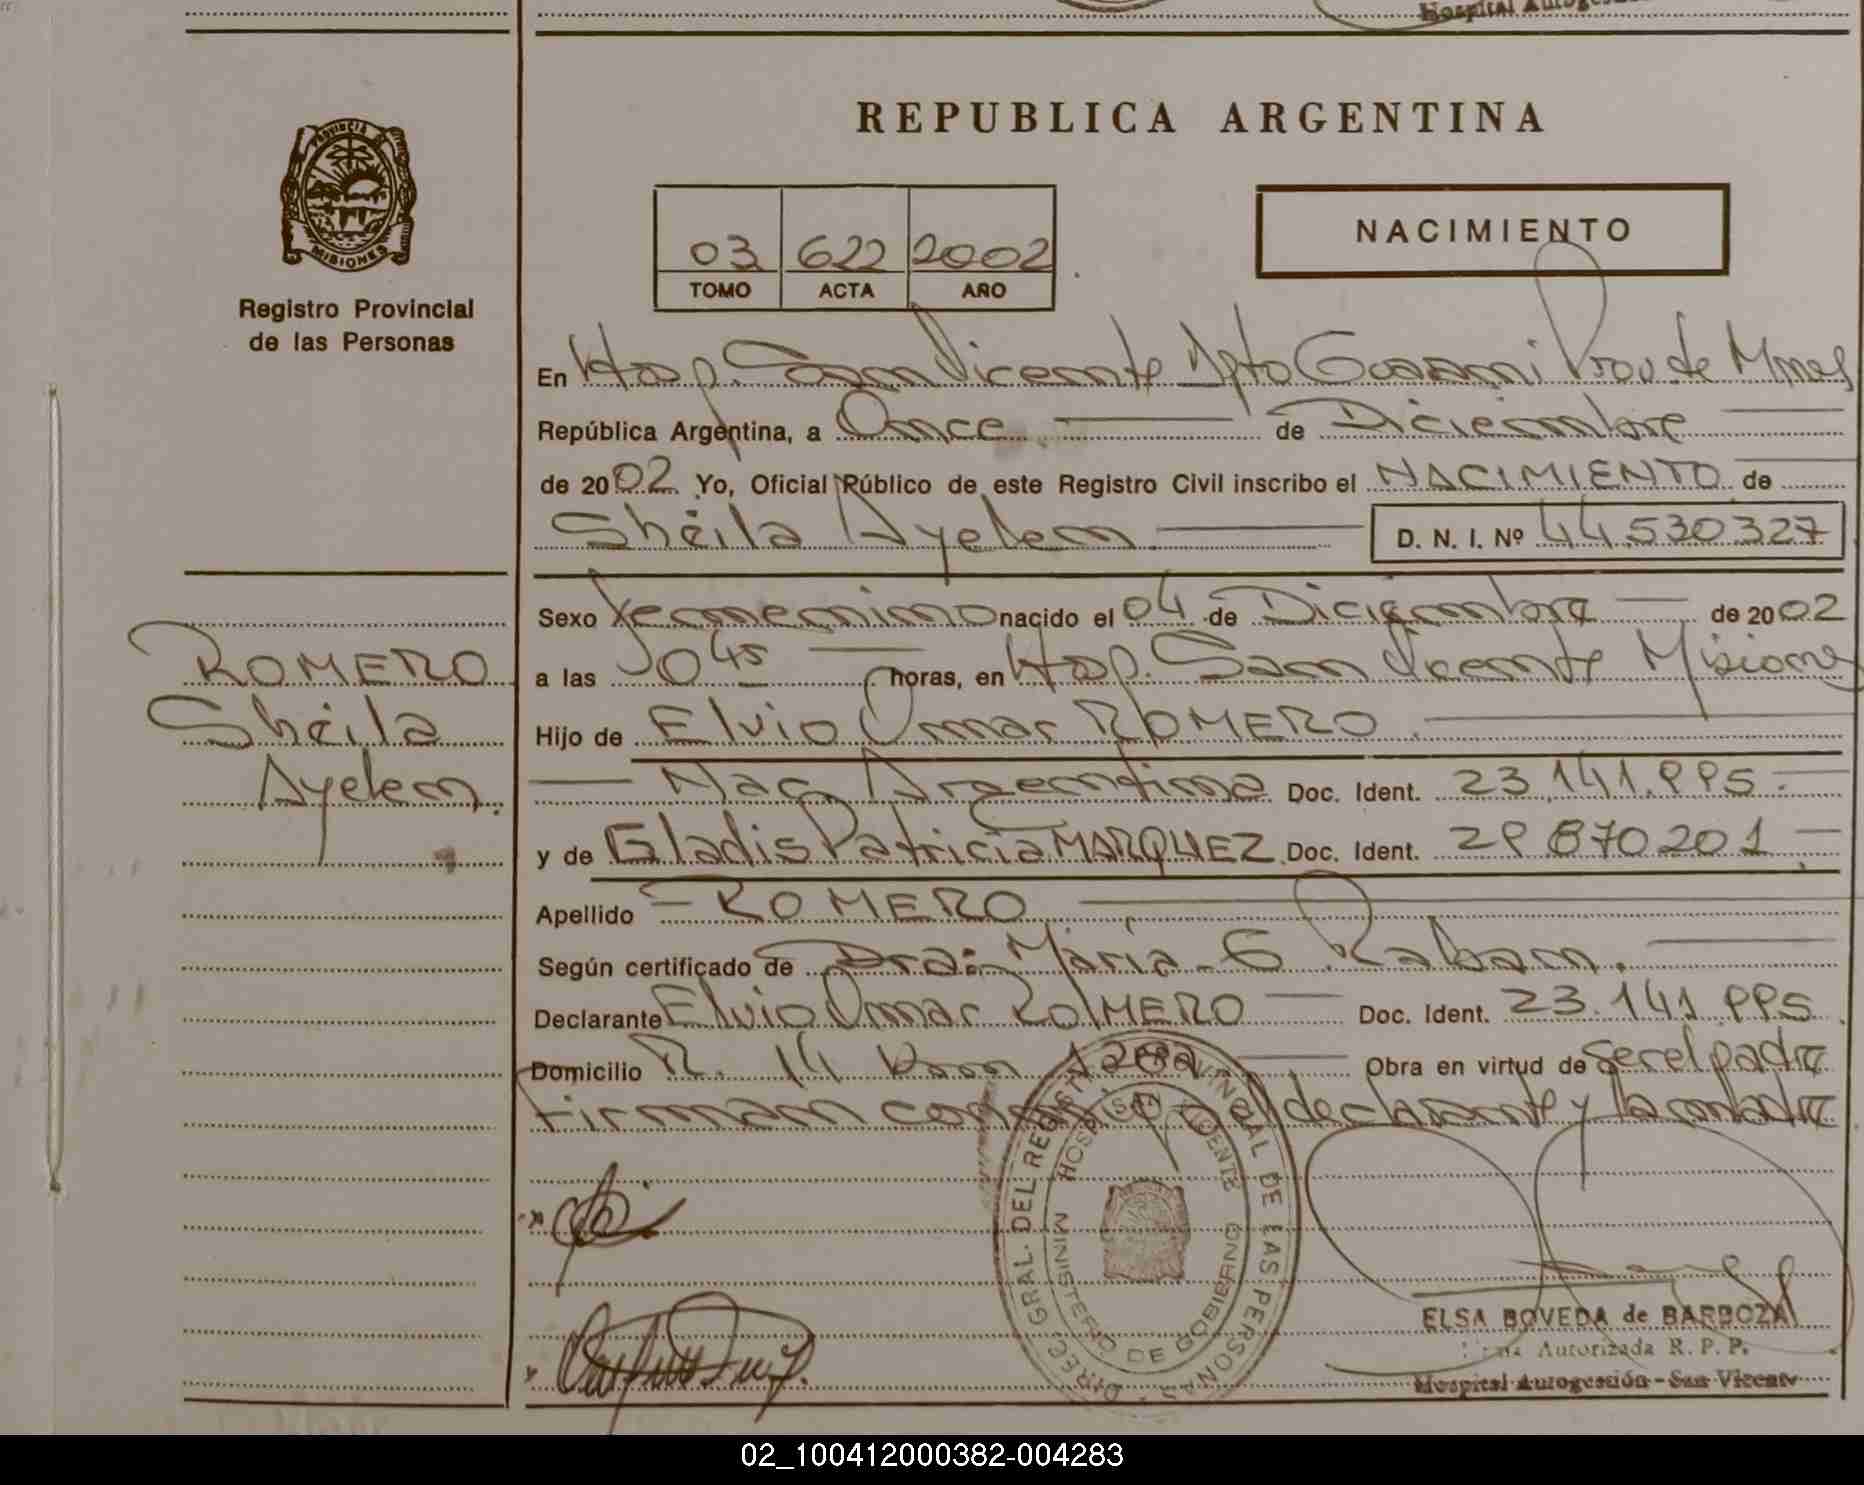 Hospital Autogestión
REPUBLICA ARGENTINA
PROVINCIA DE
MISIONES
Registro Provincial
de las Personas
03 622 2002
TOMO ACTA AÑO
NACIMIENTO
En Hosp. San Vicente Dpto Guarani Prov de Mnes
República Argentina, a Once de Diciembre
de 2002 Yo, Oficial Público de este Registro Civil inscribo el NACIMIENTO de
Sheila Ayelem D. N. I. Nº 44.530.327
Sexo femenino nacido el 04 de Diciembre de 2002
a las 045 horas, en Hosp. San Vicente Misiones
Hijo de Elvio Omar ROMERO
Nac. Argentina Doc. Ident. 23.141.995
y de Gladis Patricia MARQUEZ Doc. Ident. 29.870.201
Apellido ROMERO
Según certificado de Dra: María G Raban.
Declarante Elvio Omar ROMERO Doc. Ident. 23.141.995
Domicilio R. 14 Km 1282 Obra en virtud de ser el padre
Firman conmigo el declarante y la madre
ROMERO
Sheila
Ayelem.
DIREC. GRAL. DEL REGISTRO PROVINCIAL DE LAS PERSONAS
HOSP. SAN VICENTE
MINISTERIO DE GOBIERNO
ELSA BOVEDA de BARBOZA
Autorizada R. P. P.
Hospital Autogestión - San Vicente
02_100412000382-004283